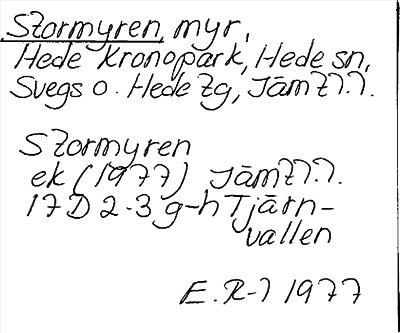 Stormyren, myr,
Hede Kronopark, Hede sn,
Svegs o. Hede tg, Jämtl.
Stormyren
ek (1977) Jämtl.
17D 2-3 g-h Tjärn-
vallen
E. R-l 1977